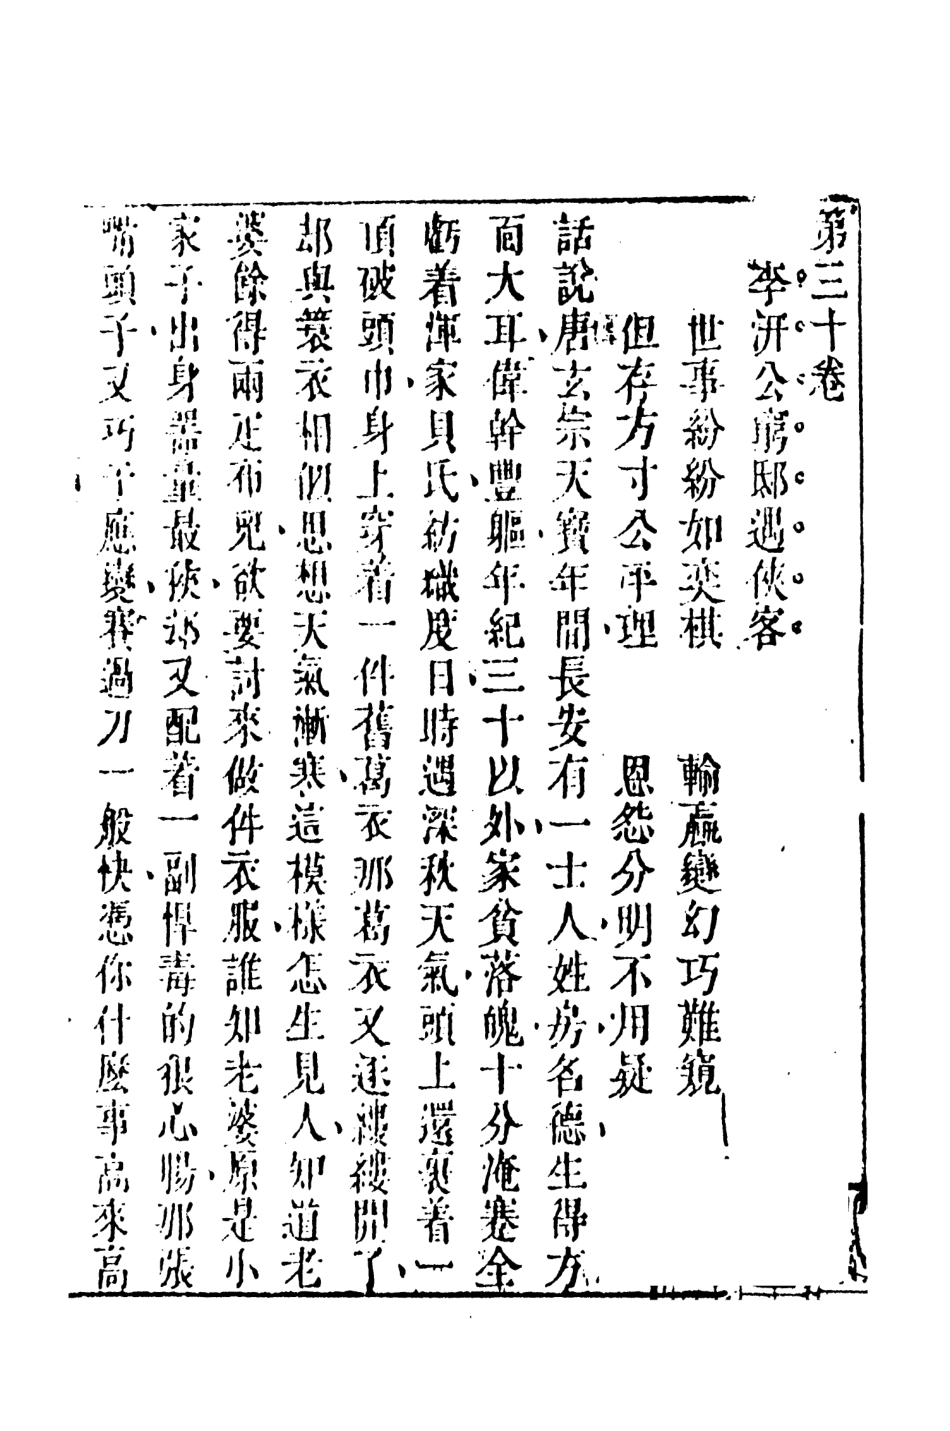 第三十卷
李汧公窮邸遇俠客
世事紛紛如奕棋　輸贏變幻巧難窺
但存方寸公平理　恩怨分明不用疑
話說唐玄宗天寶年間長安有一士人姓房名德生得方
面大耳偉幹豐軀年紀三十以外家貧落魄十分淹蹇全
虧着渾家貝氏紡織度日時遇深秋天氣頭上還裹着一
頂破頭巾身上穿着一件舊葛衣那葛衣又逐縷縷開了
却與蓑衣相似思想天氣漸寒這模樣怎生見人知道老
婆餘得兩疋布兒欲要討來做件衣服誰知老婆原是小
家子出身器量最狹却又配着一副悍毒的狠心腸那張
嘴頭子又巧于應變賽過刀一般快憑你什麼事高來高